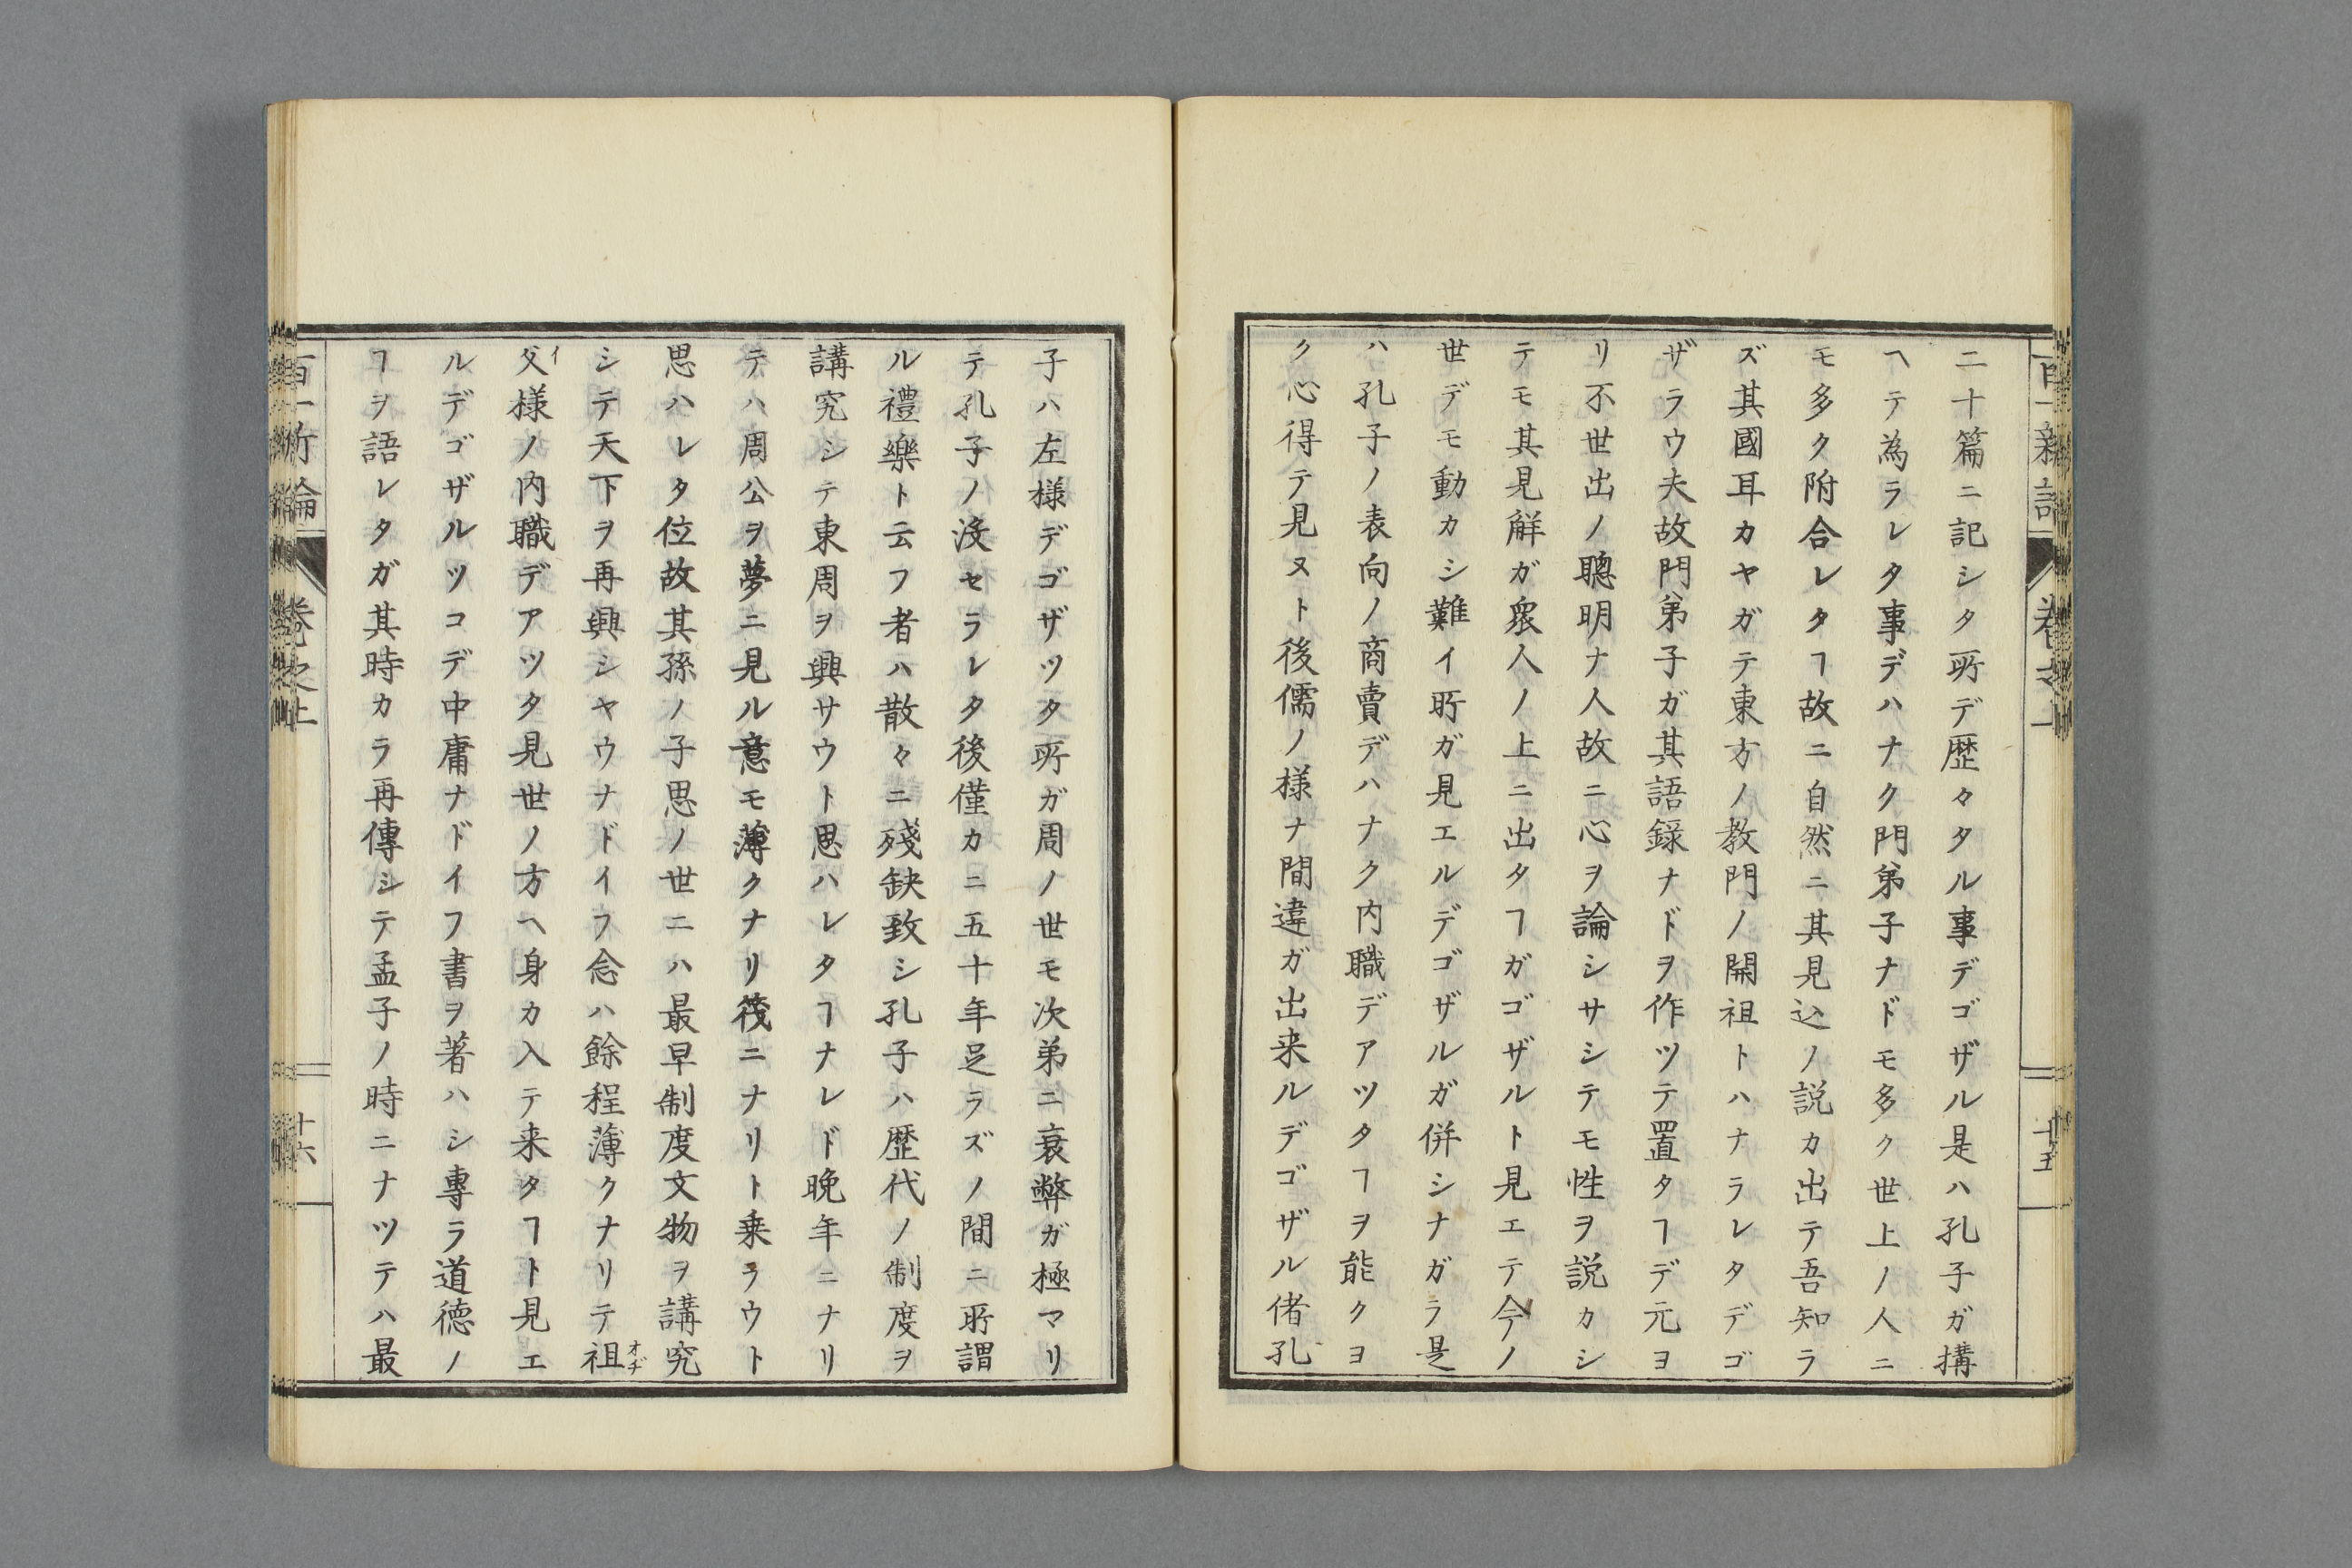 二十篇ニ記シタ所デ歴々タル事デゴザル是ハ孔子ガ搆
ヘテ為ラレタ事デハナク門弟子ナドモ多ク世上ノ人ニ
モ多ク附合レタヿ故ニ自然ニ其見込ノ説カ出テ吾知ラ
ズ其國耳カヤガテ東方ノ教門ノ開祖トハナラレタデゴ
ザラウ夫故門弟子ガ其語録ナドヲ作ツテ置タヿデ元ヨ
リ不世出ノ聰明ナ人故ニ心ヲ論シサシテモ性ヲ説カシ
テモ其見解ガ衆人ノ上ニ出タヿガゴザルト見エテ今ノ
世デモ動カシ難イ所ガ見エルデゴザルガ併シナガラ是
ハ孔子ノ表向ノ商賣デハナク内職デアツタヿヲ能クヨ
ク心得テ見ヌト後儒ノ様ナ間違ガ出来ルデゴザル偖孔
子ハ左様デゴザツタ所ガ周ノ世モ次弟ニ衰弊ガ極マリ
テ孔子ノ没セラレタ後僅カニ五十年足ラズノ間ニ所謂
ル禮樂ト云フ者ハ散々ニ殘缺致シ孔子ハ歴代ノ制度ヲ
講究シテ東周ヲ興サウト思ハレタヿナレド晩年ニナリ
テハ周公ヲ夢ニ見ル意モ薄クナリ筏ニナリト乗ラウト
思ハレタ位故其孫ノ子思ノ世ニハ最早制度文物ヲ講究
シテ天下ヲ再興シヤウナドイフ念ハ餘程薄クナリテ祖オヂ
父イ様ノ内職デアツタ見世ノ方ヘ身カ入テ来タヿト見エ
ルデゴザルツコデ中庸ナドイフ書ヲ著ハシ專ラ道徳ノ
ヿヲ語レタガ其時カラ再傳シテ孟子ノ時ニナツテハ最
百一新論
卷之上
十六